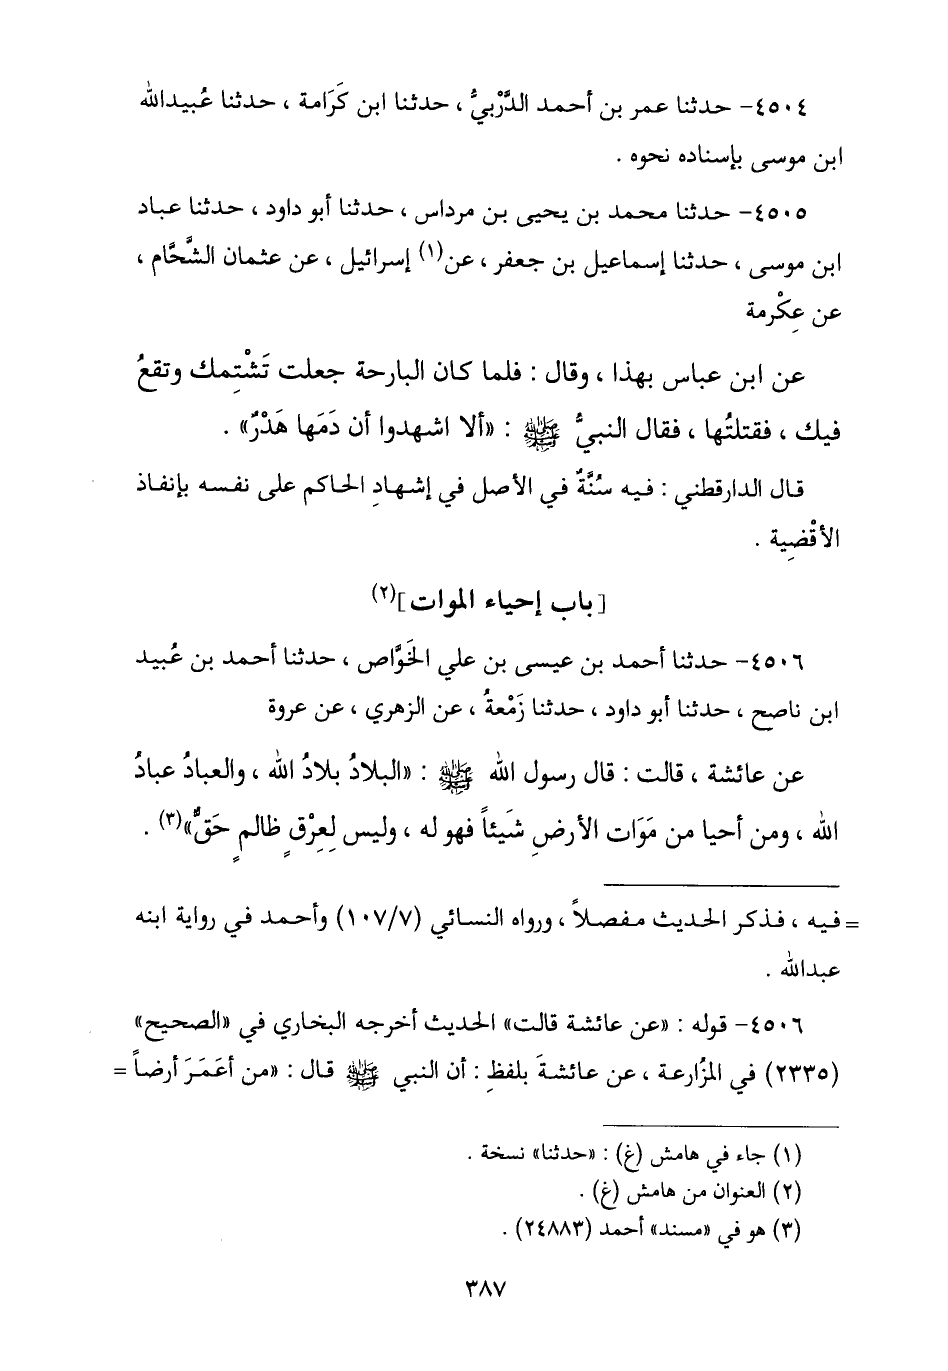 ٤٥٠٤- حدثنا عمر بن أحمد الدَّرْبيُّ ، حدثنا ابن كَرَامة ، حدثنا عُبيدالله
ابن موسى بإسناده نحوه .
٤٥٠٥- حدثنا محمد بن يحيى بن مرداس ، حدثنا أبو داود ، حدثنا عباد
ابن موسى ، حدثنا إسماعيل بن جعفر ، عن(١) إسرائيل ، عن عثمان الشَّحَّام ،
عن عِكْرمة
عن ابن عباس بهذا ، وقال : فلما كان البارحة جعلت تَشْتِمك وتقعُ
فيك ، فقتلتُها ، فقال النبيُّ ﷺ : «ألا اشهدوا أن دَمَها هَدْرٌ» .
قال الدارقطني : فيه سُنَّةٌ في الأصل في إشهادِ الحاكم على نفسه بإنفاذ
الأقْضِية .
[باب إحياء الموات](٢)
٤٥٠٦- حدثنا أحمد بن عيسى بن علي الخَوَّاص ، حدثنا أحمد بن عُبيد
ابن ناصح ، حدثنا أبو داود ، حدثنا زَمْعةُ ، عن الزهري ، عن عروة
عن عائشة ، قالت : قال رسول الله ﷺ : «البلادُ بلادُ الله ، والعبادُ عبادُ
الله ، ومن أحيا من مَوَات الأرضِ شَيئاً فهو له ، وليس لِعِرْقٍ ظالمٍ حَقٌّ»(٣) .
= فيه ، فذكر الحديث مفصلاً ، ورواه النسائي (١٠٧/٧) وأحمد في رواية ابنه
عبدالله .
٤٥٠٦- قوله : «عن عائشة قالت» الحديث أخرجه البخاري في «الصحيح»
(٢٣٣٥) في المزُارعة ، عن عائشةَ بلفظِ : أن النبي ﷺ قال : «من أعَمَرَ أرضاً =
(١) جاء في هامش (غ) : «حدثنا» نسخة .
(٢) العنوان من هامش (غ) .
(٣) هو في «مسند» أحمد (٢٤٨٨٣) .
٣٨٧